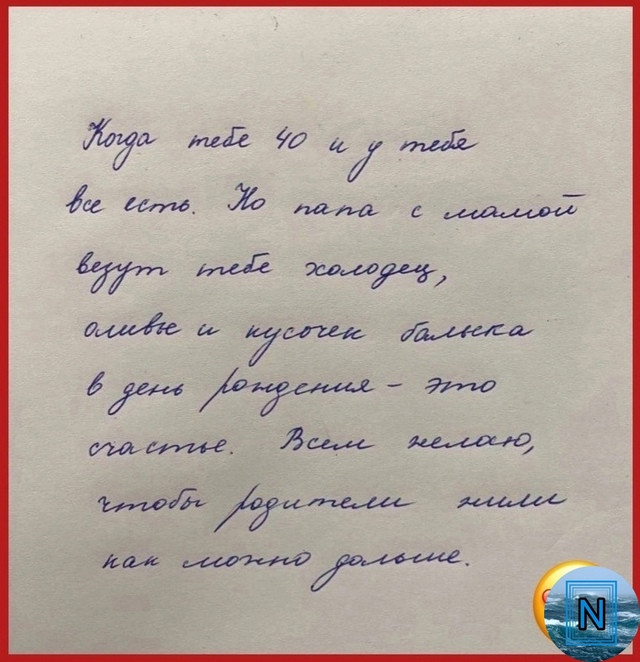 Когда тебе 40 и у тебя
все есть. Но папа с мамой
везут тебе холодец,
оливье и кусочек балыка
в день рождения – это
счастье. Всем желаю,
чтобы родители жили
как можно дольше.
N